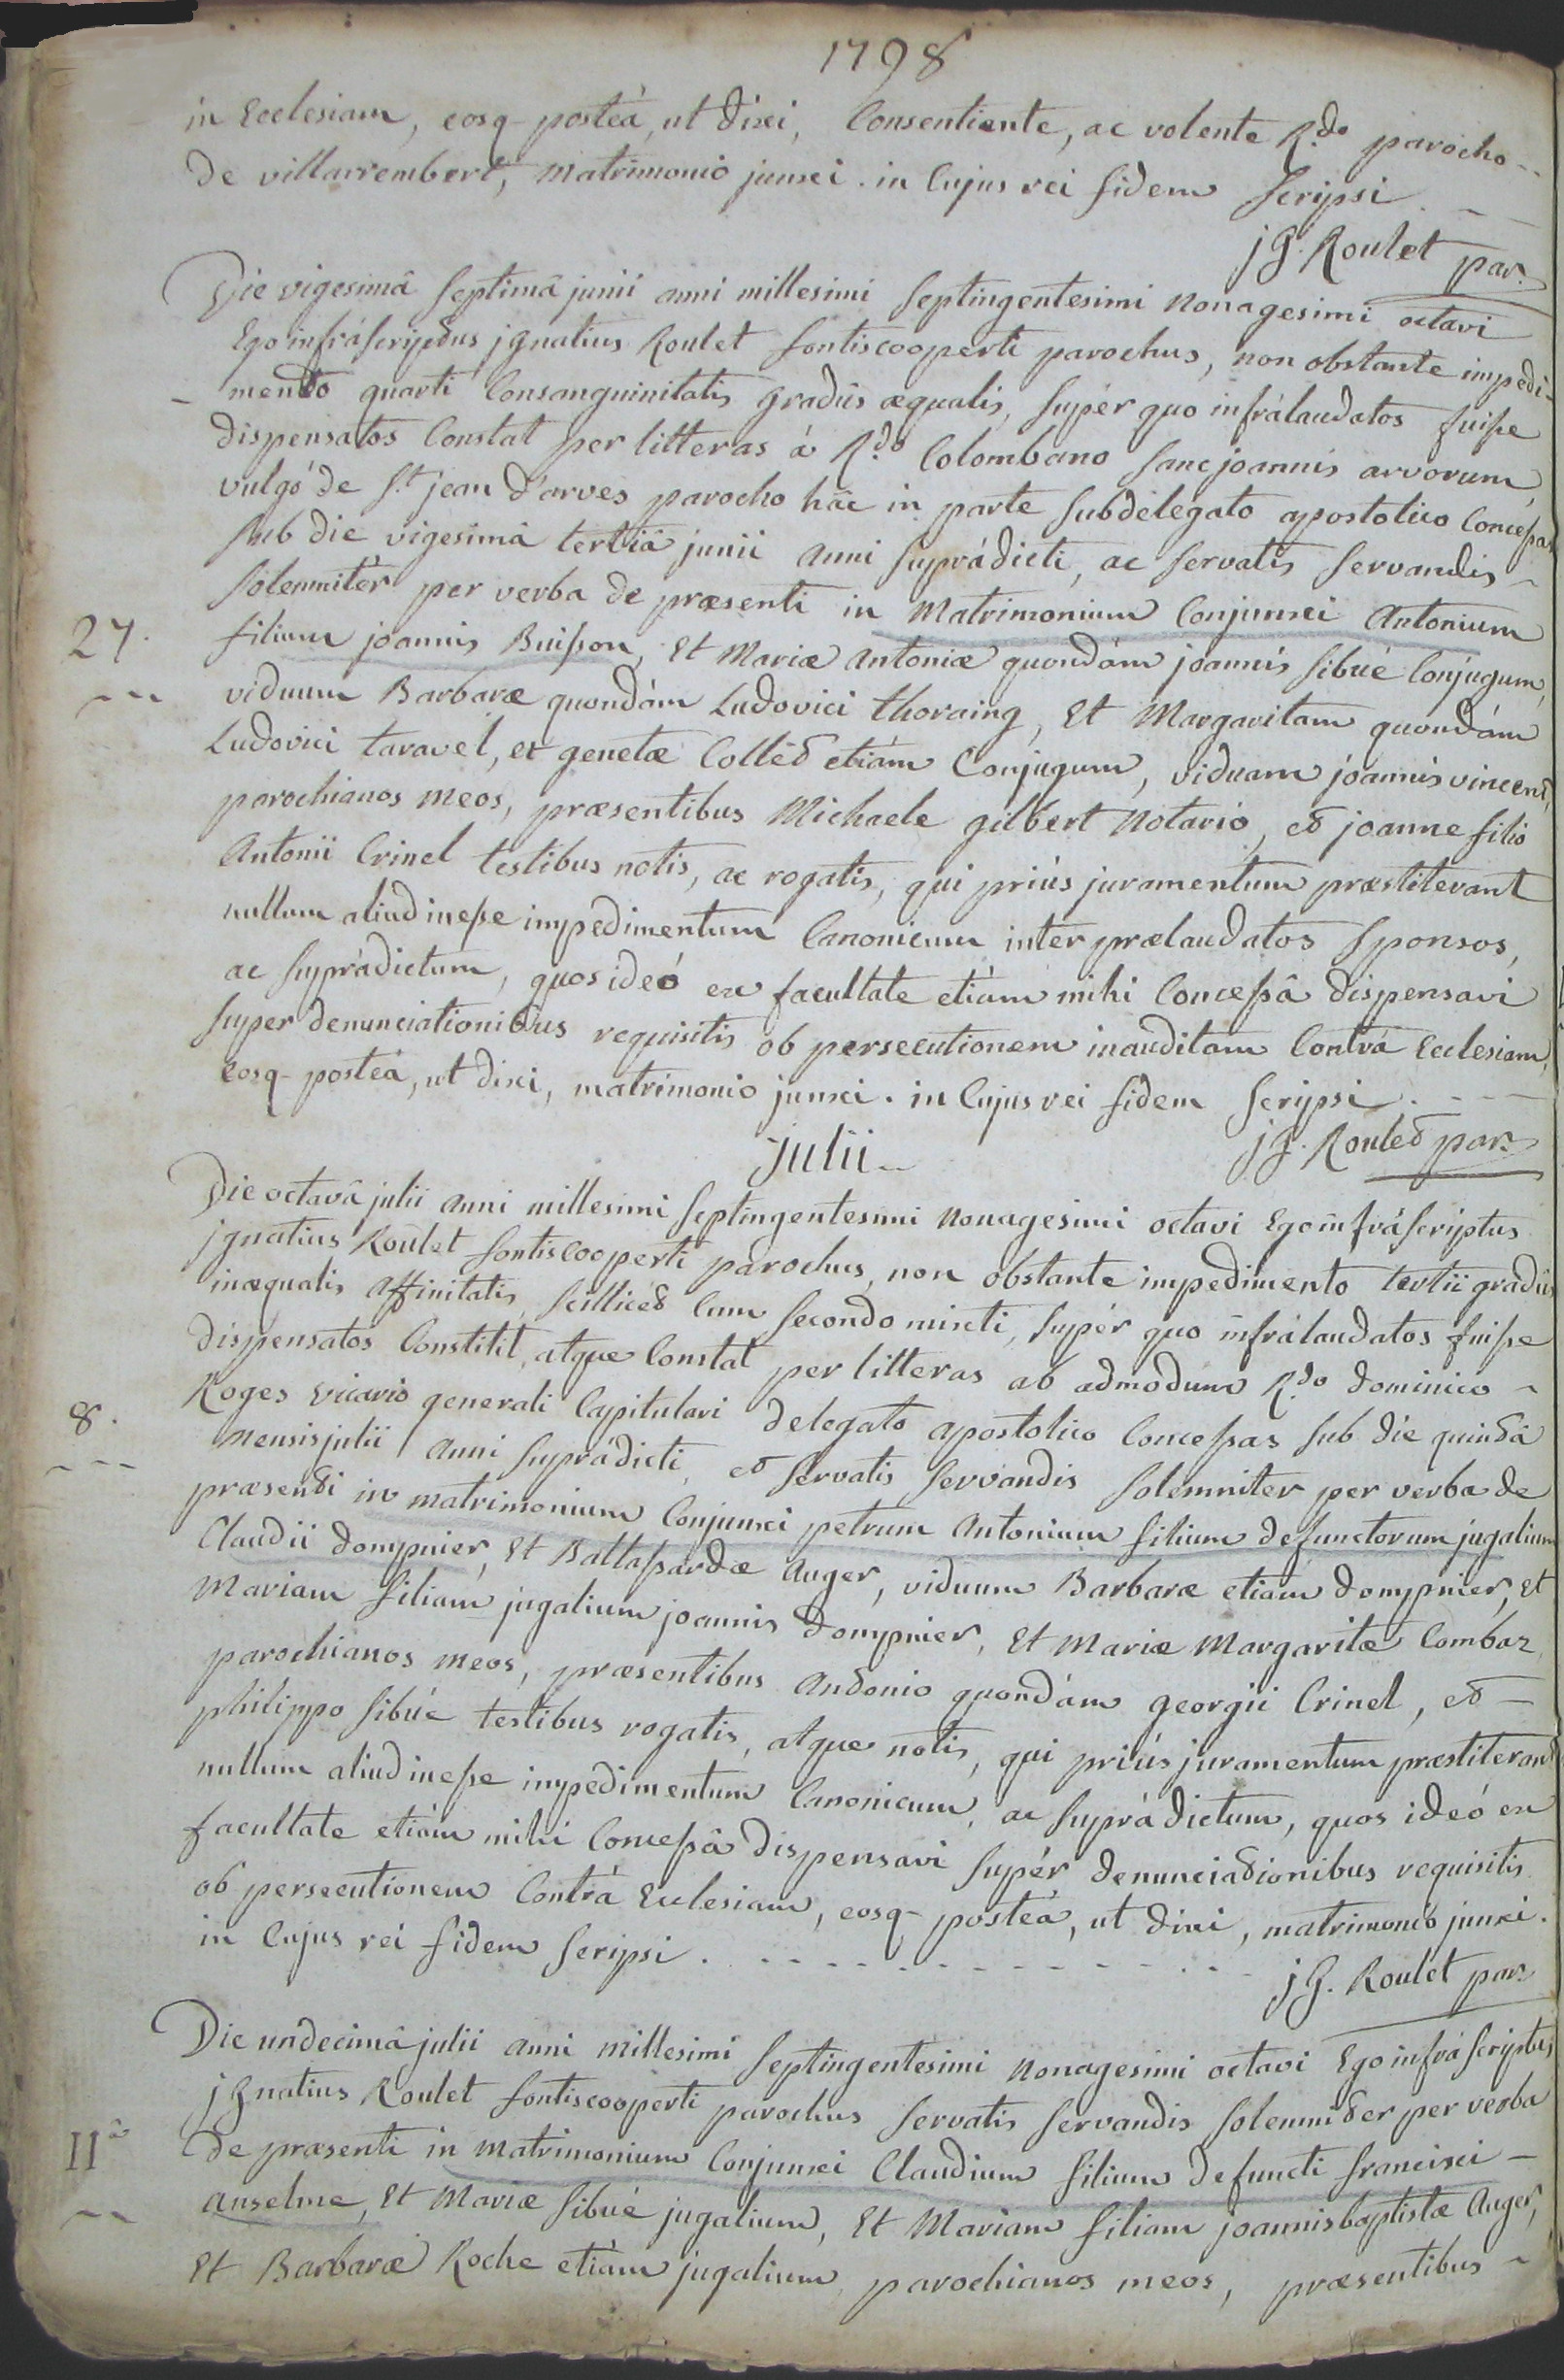 1798
in Ecclesiam, eosq- posteà, ut dixi, Consentiente, ac volente R.do parocho--
de villarrembert, matrimonio junxi. in Cujus rei fidem scripsi. - -
jg. Roulet par.
Die vigesimâ septimâ junii anni millesimi septingentesimi nonagesimi octavi
Ego infràscriptus jgnatius Roulet fontiscooperti parochus, non obstante impedi-
mento quarti Consanguinitatis gradûs æqualis, supèr quo infràlaudatos fuisse
dispensatos Constat per litteras à R.do Colombano sanc joannis arvorum,
vulgò de s.t jean d'arves parocho hâc in parte subdelegato apostolico Concessas
sub die vigesimâ tertiâ junii anni supràdicti, ac servatis servandis -
solemnitèr per verba de præsenti in Matrimonium Conjunxi Antonium
27.
filium joannis Buisson, Et Mariæ Antoniæ quondàm joannis sibué Conjugum,
viduum Barbaræ quondàm Ludovici thoraing, Et Margaritam quondàm
Ludovici taravel, et genetæ Collet etiàm Conjugum, viduam joannis vincent,
parochianos meos, præsentibus Michaele gilbert Notario, et joanne filio
Antonii Crinel testibus notis, ac rogatis, qui priùs juramentum præstiterant
nullum aliud inesse impedimentum Canonicum inter prælaudatos sponsos,
ac supràdictum, quos ideò ex facultate etiàm mihi Concessâ dispensavi
super denunciationibus requisitis ob persecutionem inauditam Contrà Ecclesiam,
eosq- posteà, ut dixi, matrimonio junxi. in Cujus rei fidem scripsi. - - -
jg. Roulet par.
julii -
Die octavâ julii anni millesimi septingentesimi nonagesimi octavi Ego infràscriptus
jgnatius Roulet fontiscooperti parochus, non obstante impedimento tertii gradûs
inæqualis affinitatis, scillicet Cum secondo mixti, supèr quo infràlaudatos fuisse
dispensatos Constitit, atque Constat per litteras ab admodum R.do dominico -
Roges vicario generali Capitulari delegato apostolico Concessas sub die quintâ
8.
mensis julii anni supràdicti, et servatis servandis solemniter per verba de
præsenti in matrimonium Conjunxi petrum Antonium filium defunctorum jugalium
Claudii dompnier, Et Baltassardæ Auger, viduum Barbaræ etiàm dompnier, Et
Mariam filiam jugalium joannis dompnier, Et Mariæ Margaritæ Combaz
parochianos meos, præsentibus Antonio quondàm georgii Crinel, et -
philippo sibué testibus rogatis, atque notis, qui priùs juramentum præstiterant
nullum aliud inesse impedimentum Canonicum, ac supràdictum, quos ideò ex
facultate etiàm mihi Concessâ dispensavi supèr denunciationibus requisitis
ob persecutionem Contrà Ecclesiam, eosq- posteà, ut dixi, matrimonio junxi.
in Cujus rei fidem scripsi. - - - - - - - - - - - -
jg. Roulet par.
Die undecimâ julii anni millesimi septingentesimi nonagesimi octavi Ego infràscriptus
jgnatius Roulet fontiscooperti parochus servatis servandis solemniter per verba
IIa
de præsenti in matrimonium Conjunxi Claudium filium defuncti francisci -
Anselme, Et Mariæ sibué jugalium, Et Mariam filiam joannisbaptistæ Auger,
Et Barbaræ Roche etiàm jugalium parochianos meos, præsentibus -